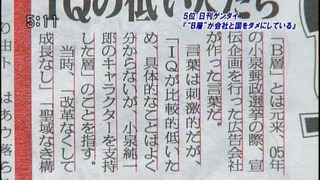 5:11
5位 日刊ゲンダイ
「"B層"が会社と国をダメにしている」
IQの低い
「B層」とは元来、05年
の小泉郵政選挙の際、宣
伝企画を行った広告会社
が作った言葉だ。
言葉は刺激的だが、
「IQが比較的低いた
め、具体的なことはよく
分からないが、小泉純一
郎のキャラクターを支持
した層」のことを指す。
当時、「改革なくして
成長なし」「聖域なき構